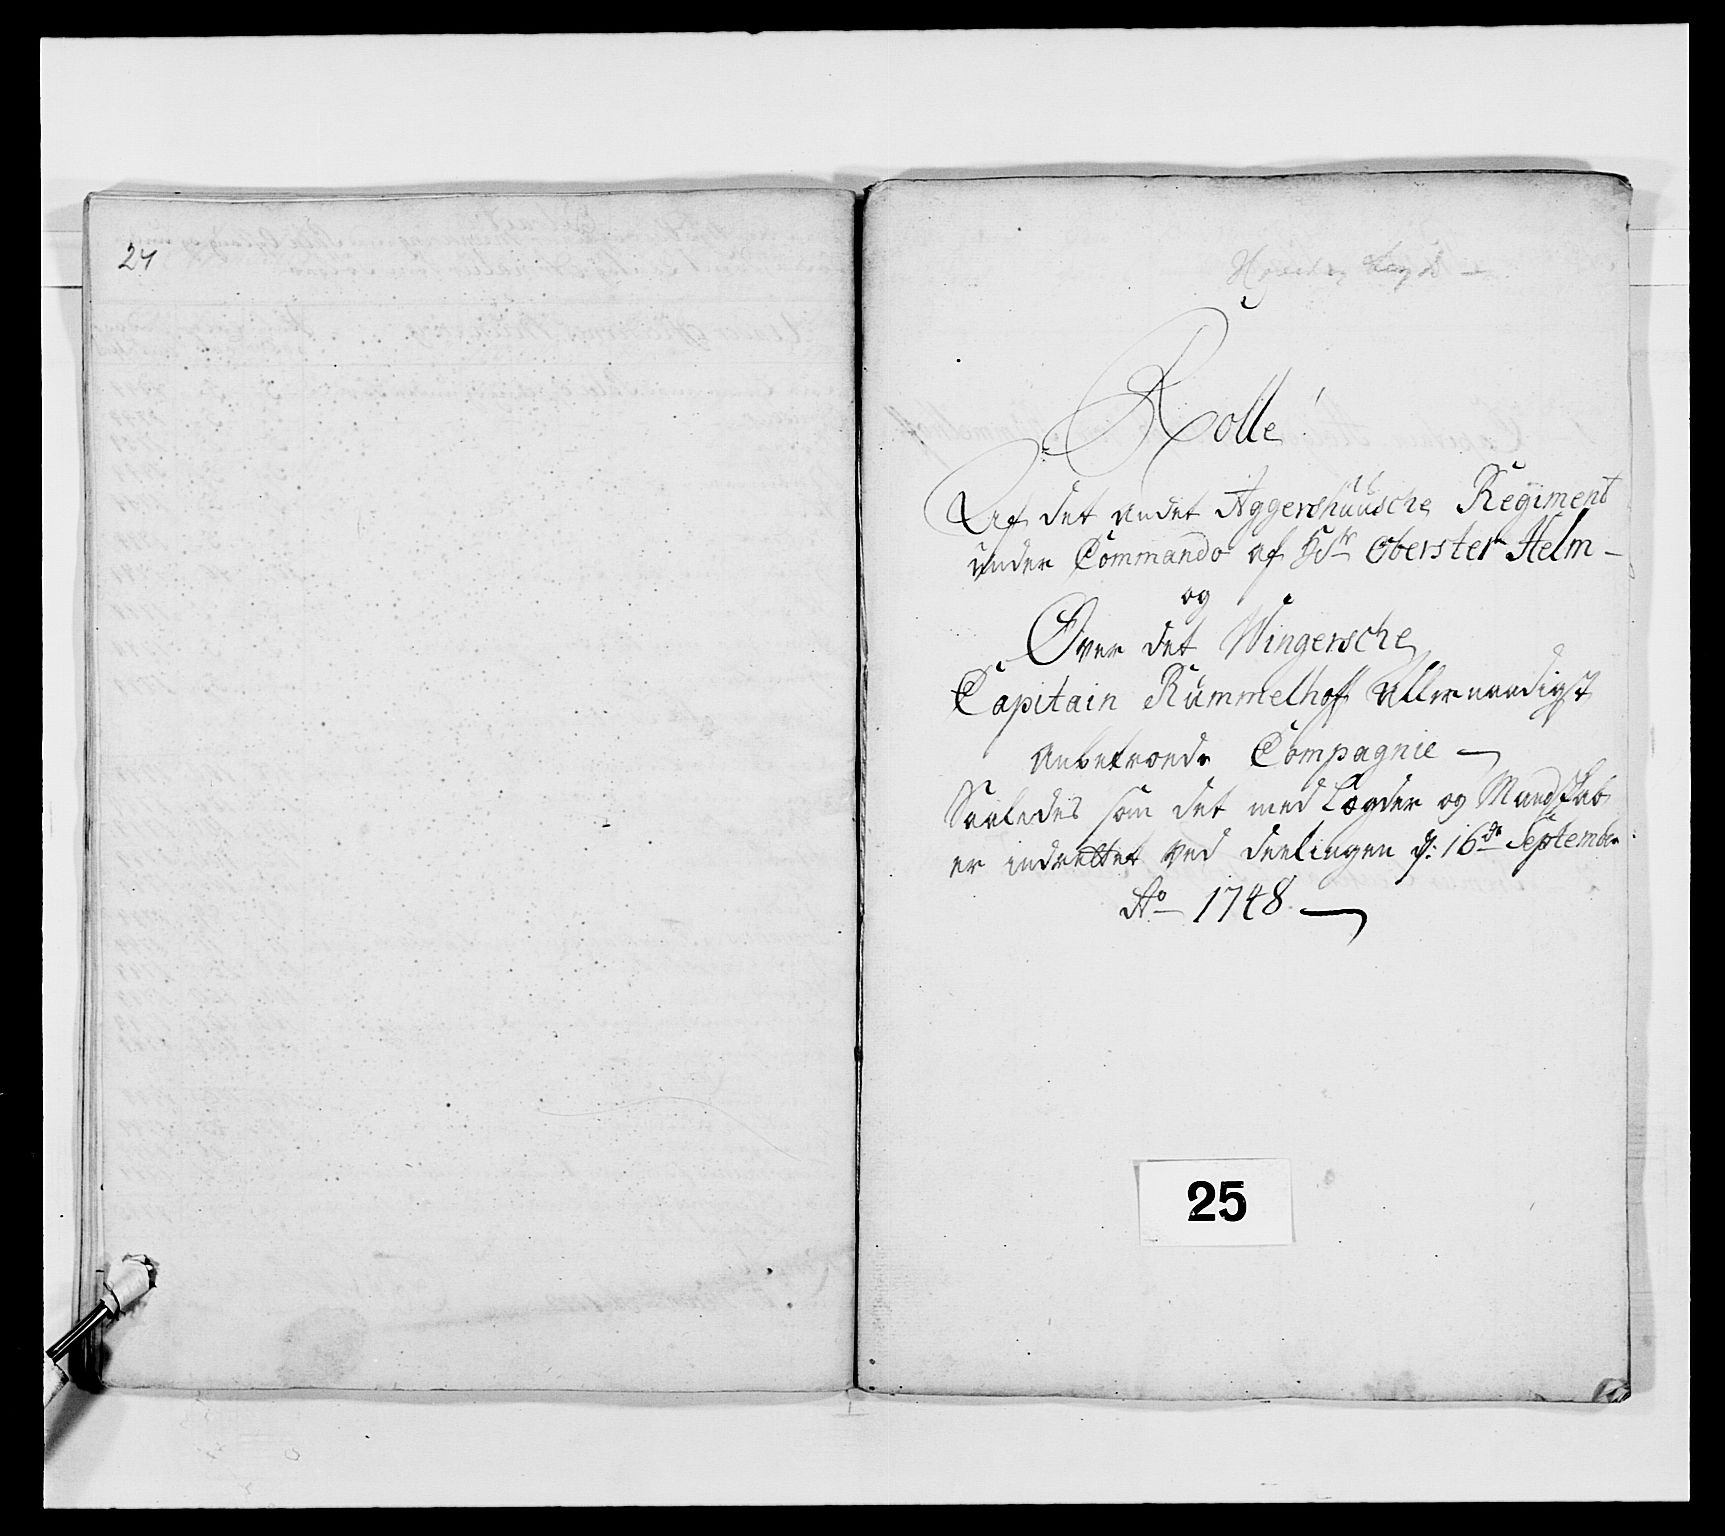 24
Rolle
Af det andet Aggershuusche Regiment
under Commando af Hr Oberster Helm
og
Over det Wingersche
Capitain Rummelhoff Allernaadigst
Anbetroede Compagnie
Saaledes som det med Lægder og Mandskab
er indrettet ved deelingen d: 16de September
Ao 1748
25